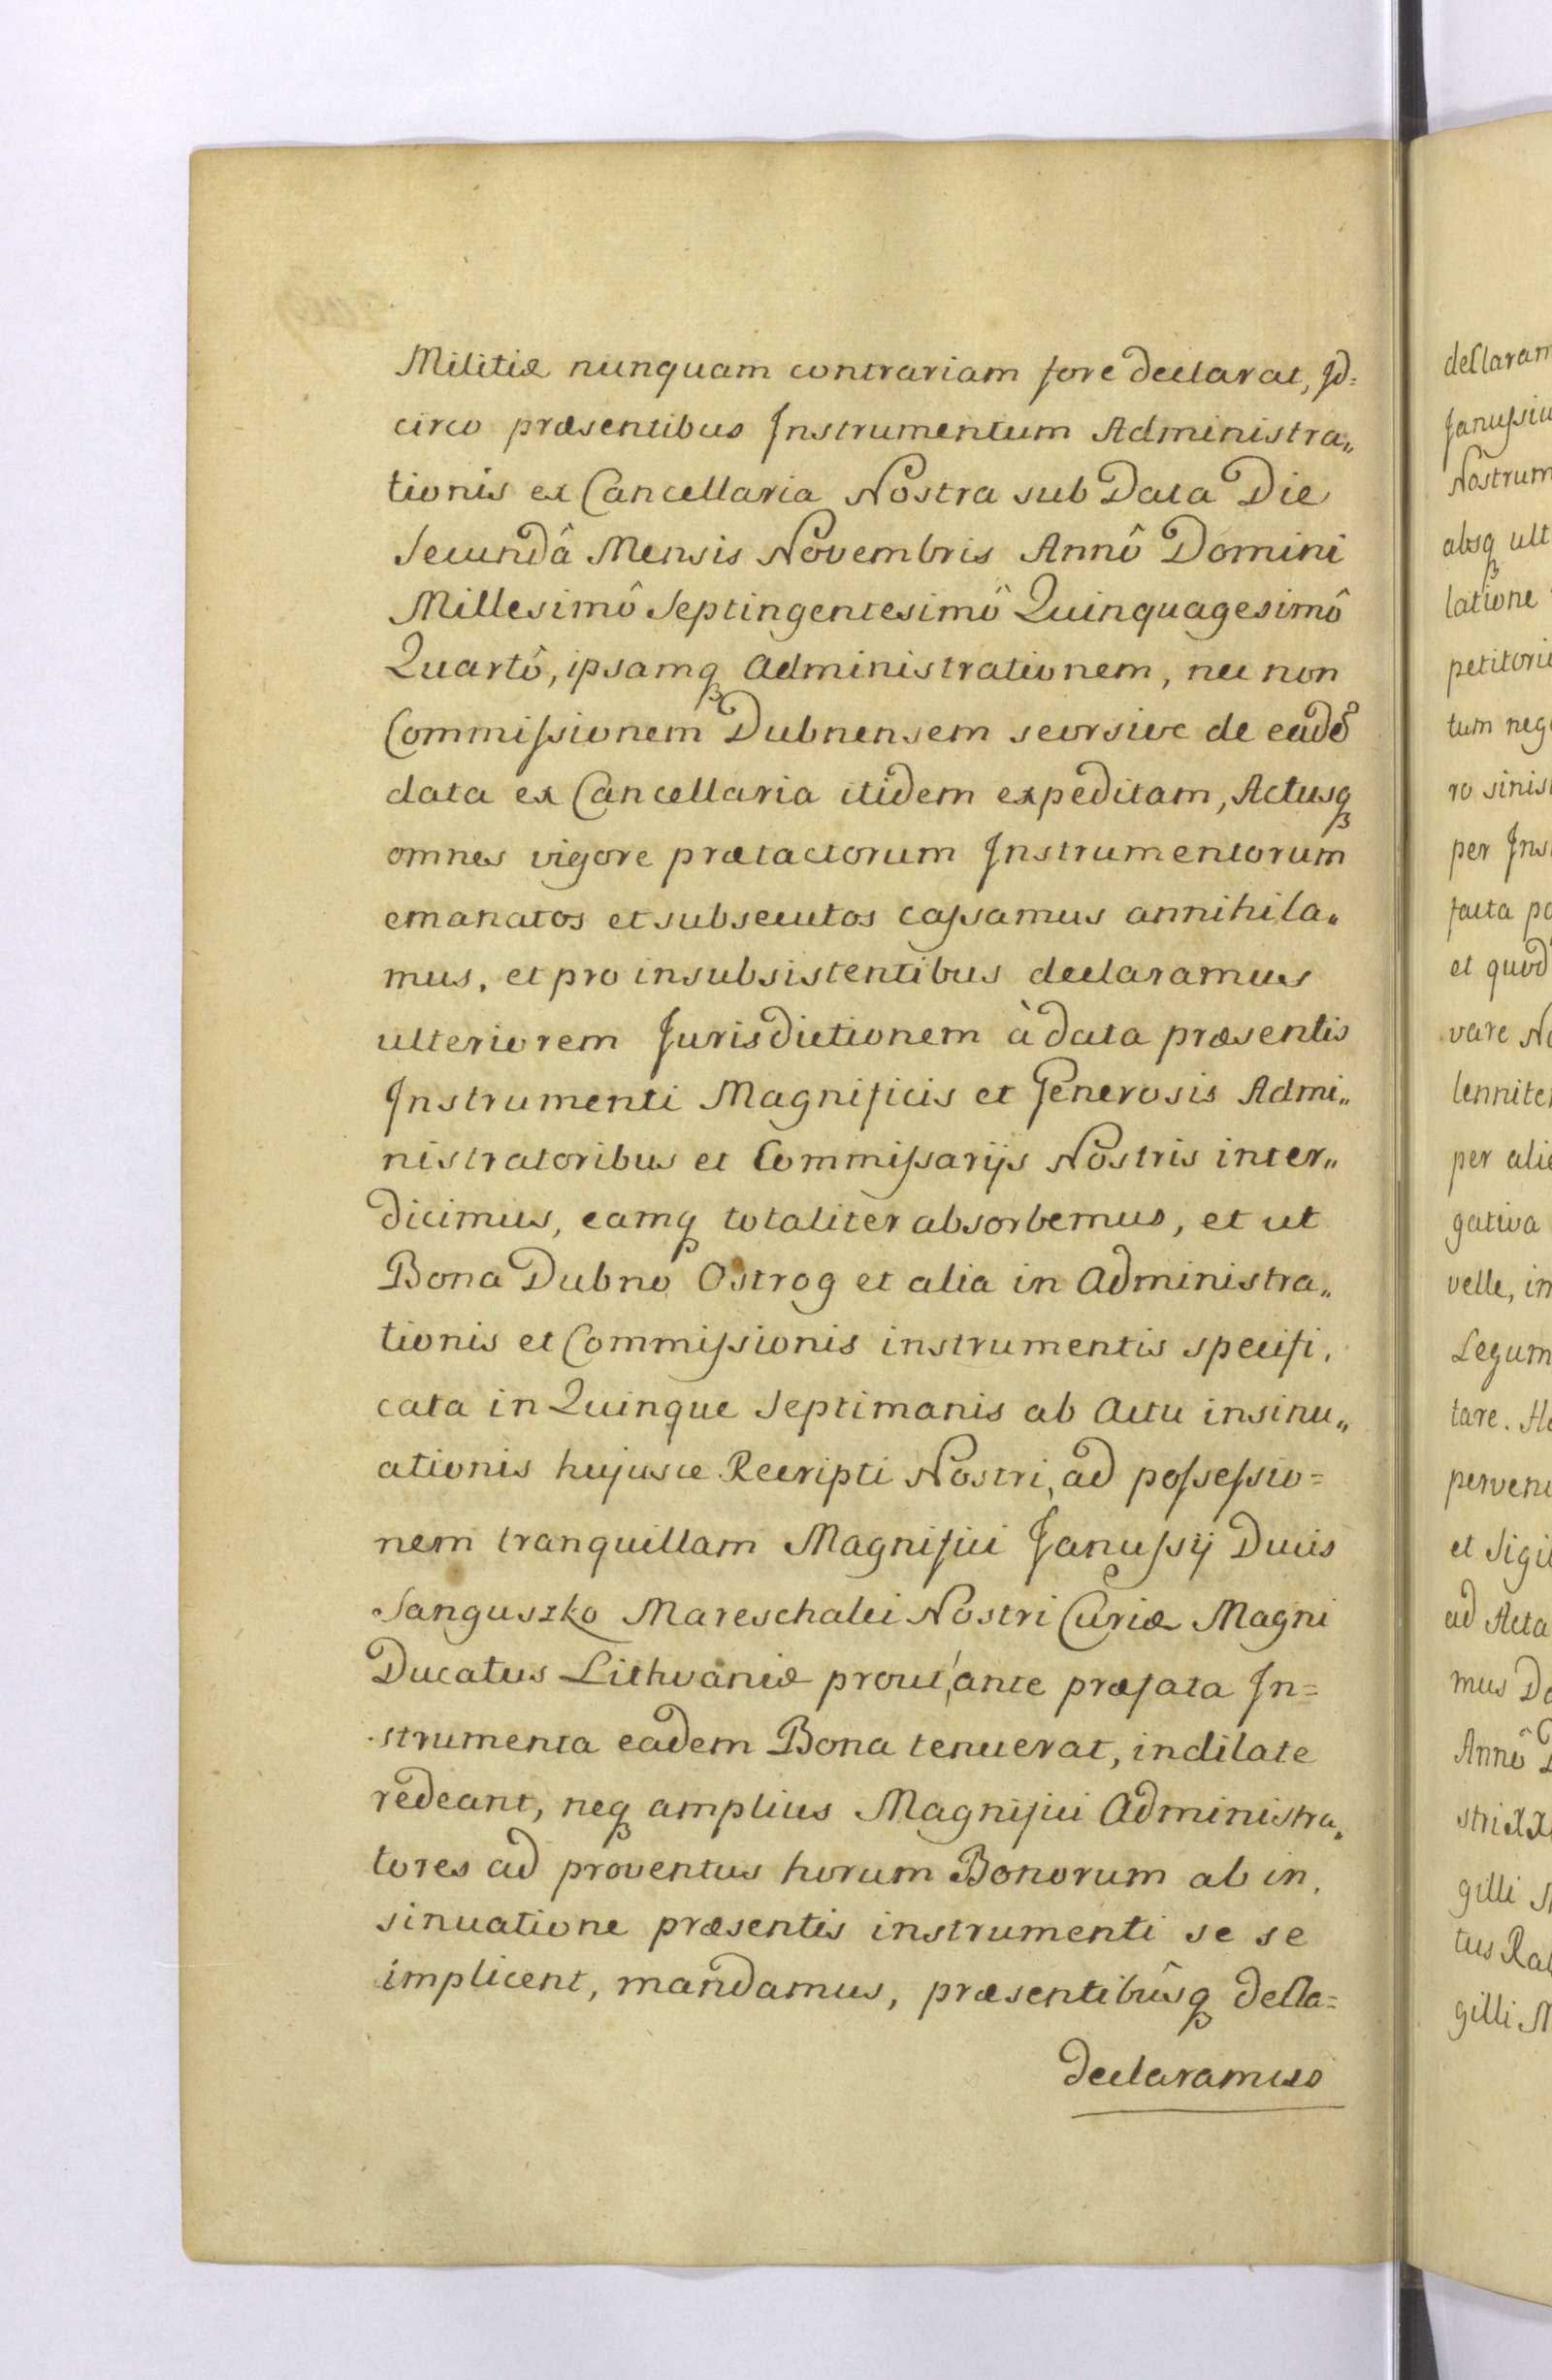 Militiæ nunquam contrariam fore declarat, Id=
circo præsentibus Instrumentum Administra„
tionis ex Cancellaria Nostra sub Data Die
Secundâ Mensis Novembris Annô Domini
Millesimô Septingentesimô Quinquagesimô
Quartô, ipsamq Administrationem, nec non
Commissionem Dubnensem seorsive de eâdẽ
data ex Cancellaria itidem expeditam, Actusq
omnes vigore prætactorum Instrumentorum
emanatos et subsecutos cassamus annihila„
mus, et pro insubsistentibus declaramus
ulteriorem Jurisdictionem à data præsentis
Instrumenti Magnificis et Generosis Admi„
nistratoribus et Commissarijs Nostris inter„
dicimus, eamq totaliter absorbemus, et ut
Bona Dubno Ostrog et alia in Administra„
tionis et Commissionis instrumentis specifi,
cata in Quinque Septimanis ab Actu insinu„
ationis hujusce Recripti Nostri, ad possessio=
nem tranquillam Magnifici Janussij Ducis
Sanguszko Mareschalci Nostri Curiæ Magni
Ducatus Lithvaniæ prout, ante præfata In=
strumenta eadem Bona tenuerat, indilate
redeant, neq amplius Magnifici Administra„
tores ad proventus horum Bonorum ab in,
sinuatione præsentis instrumenti se se
implicent, mandamus, præsentibûsq decla=
declaramus
declaram
Janussiu
Nostrum
absq ult
latione
petitori
tum neg
ro sinis
per Ins
facta po
et quod
vare No
lennite
per ali
gativa
velle, in
Legum
tare. Ha
perveni
et Sigi
ad Acta
mus Da
Annô D
stri
gilli
tus Ra
gilli M